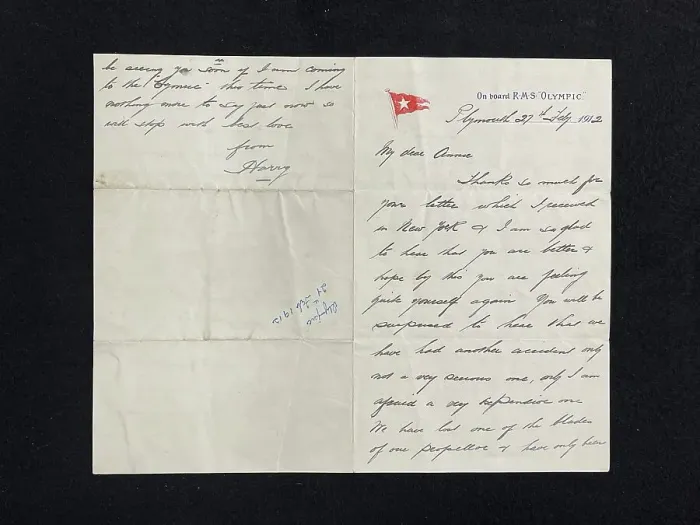 On board R.M.S. "OLYMPIC."
Plymouth 27th Feby 1912
My dear
Thanks so much for
your letter which I received
in New York & I am so glad
to hear that you are better &
hope by this you are feeling
quite yourself again You will be
surprised to here that we
have had another accident only
not a very serious one, only I am
afraid a very expensive one
We have lost one of the blades
of our propellor & have only been
be seeing you soon if I am coming
to the this time I have
nothing more to say just now so
will stop with best love
from
Harry
Olympic
Feb 1912